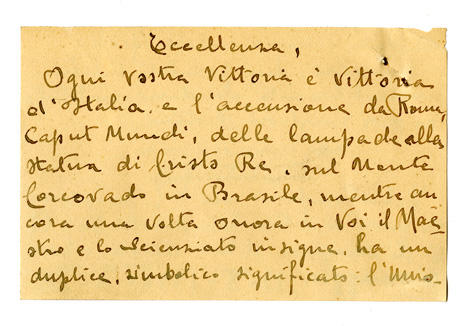 Eccellenza,
Ogni Vostra Vittoria è Vittoria
d'Italia. e l'accensione da Roma,
Caput Mundi, delle lampade alla
statua di Cristo Re, sul Monte
Corcovado in Brasile, mentre an
cora una volta onora in Voi il Mae-
stro e lo Scienziato insigne, ha un
duplice, simbolico significato: l'Unio-